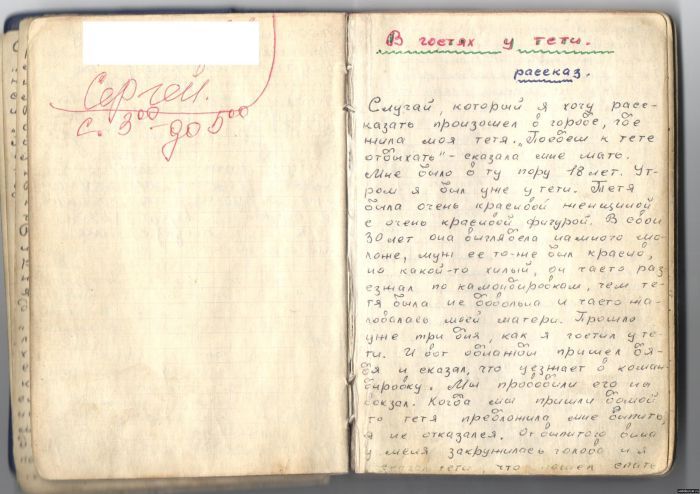 Сергей.
с. 3⁰⁰ до 5⁰⁰
В гостях у тети.
рассказ.
Случай, который я хочу расс-
казать произошел в городе, где
жила моя тетя. „Поедеш к тете
отдыхать" – сказала мне мать.
Мне было в ту пору 18 лет. Ут-
ром я был уже у тети. Тетя
была очень красивой женщиной
с очень красивой фигурой. В свои
30 лет она выглядела намного мо-
ложе, муж ее то-же был красив,
но какой-то хилый, он часто раз
езжал по камондировкам, чем те-
тя была не довольна и часто жа-
ловалась моей матери. Прошло
уже три дня, как я гостил у те-
ти. И вот однажды пришел дя-
дя и сказал, что уезжает в коман
дировку. Мы проводили его на
вокзал. Когда мы пришли домой
то тетя предложила мне выпить,
я не отказался. От выпитого вина
у меня закружилась голова и я
сказал тети, что пошел спать